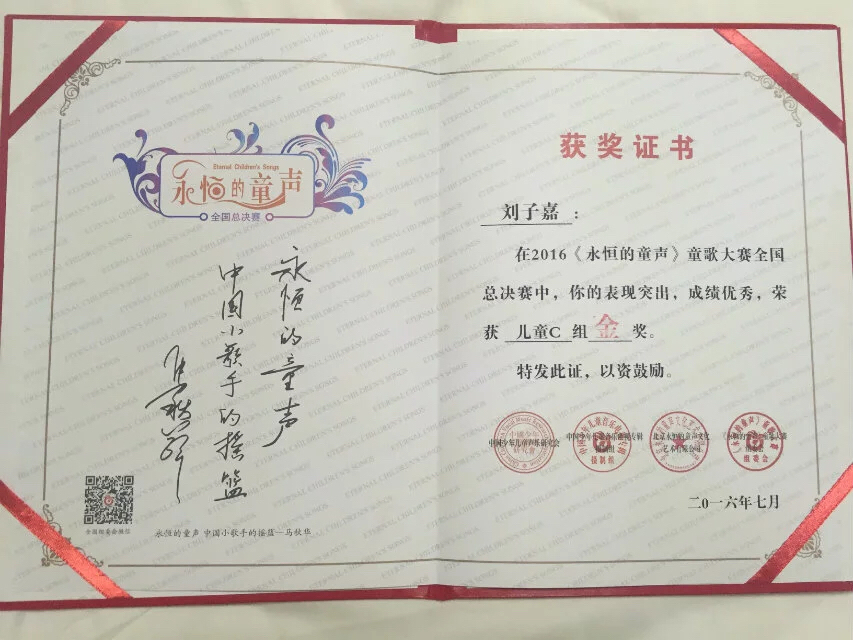 Eternal Children's Songs
永恒的童声
全国总决赛
永恒的童声
中国小歌手的摇篮
马秋华
全国组委会微信
永恒的童声 中国小歌手的摇篮—马秋华
获奖证书
刘子嘉：
在2016《永恒的童声》童歌大赛全国
总决赛中，你的表现突出，成绩优秀，荣
获 儿童C 组 金 奖。
特发此证，以资鼓励。
中国少年儿童声乐研究会
北京永恒的童声文化
艺术有限公司
《永恒的童声》童歌大赛
组委会
二〇一六年七月
ETERNAL CHILDREN'S SONGS